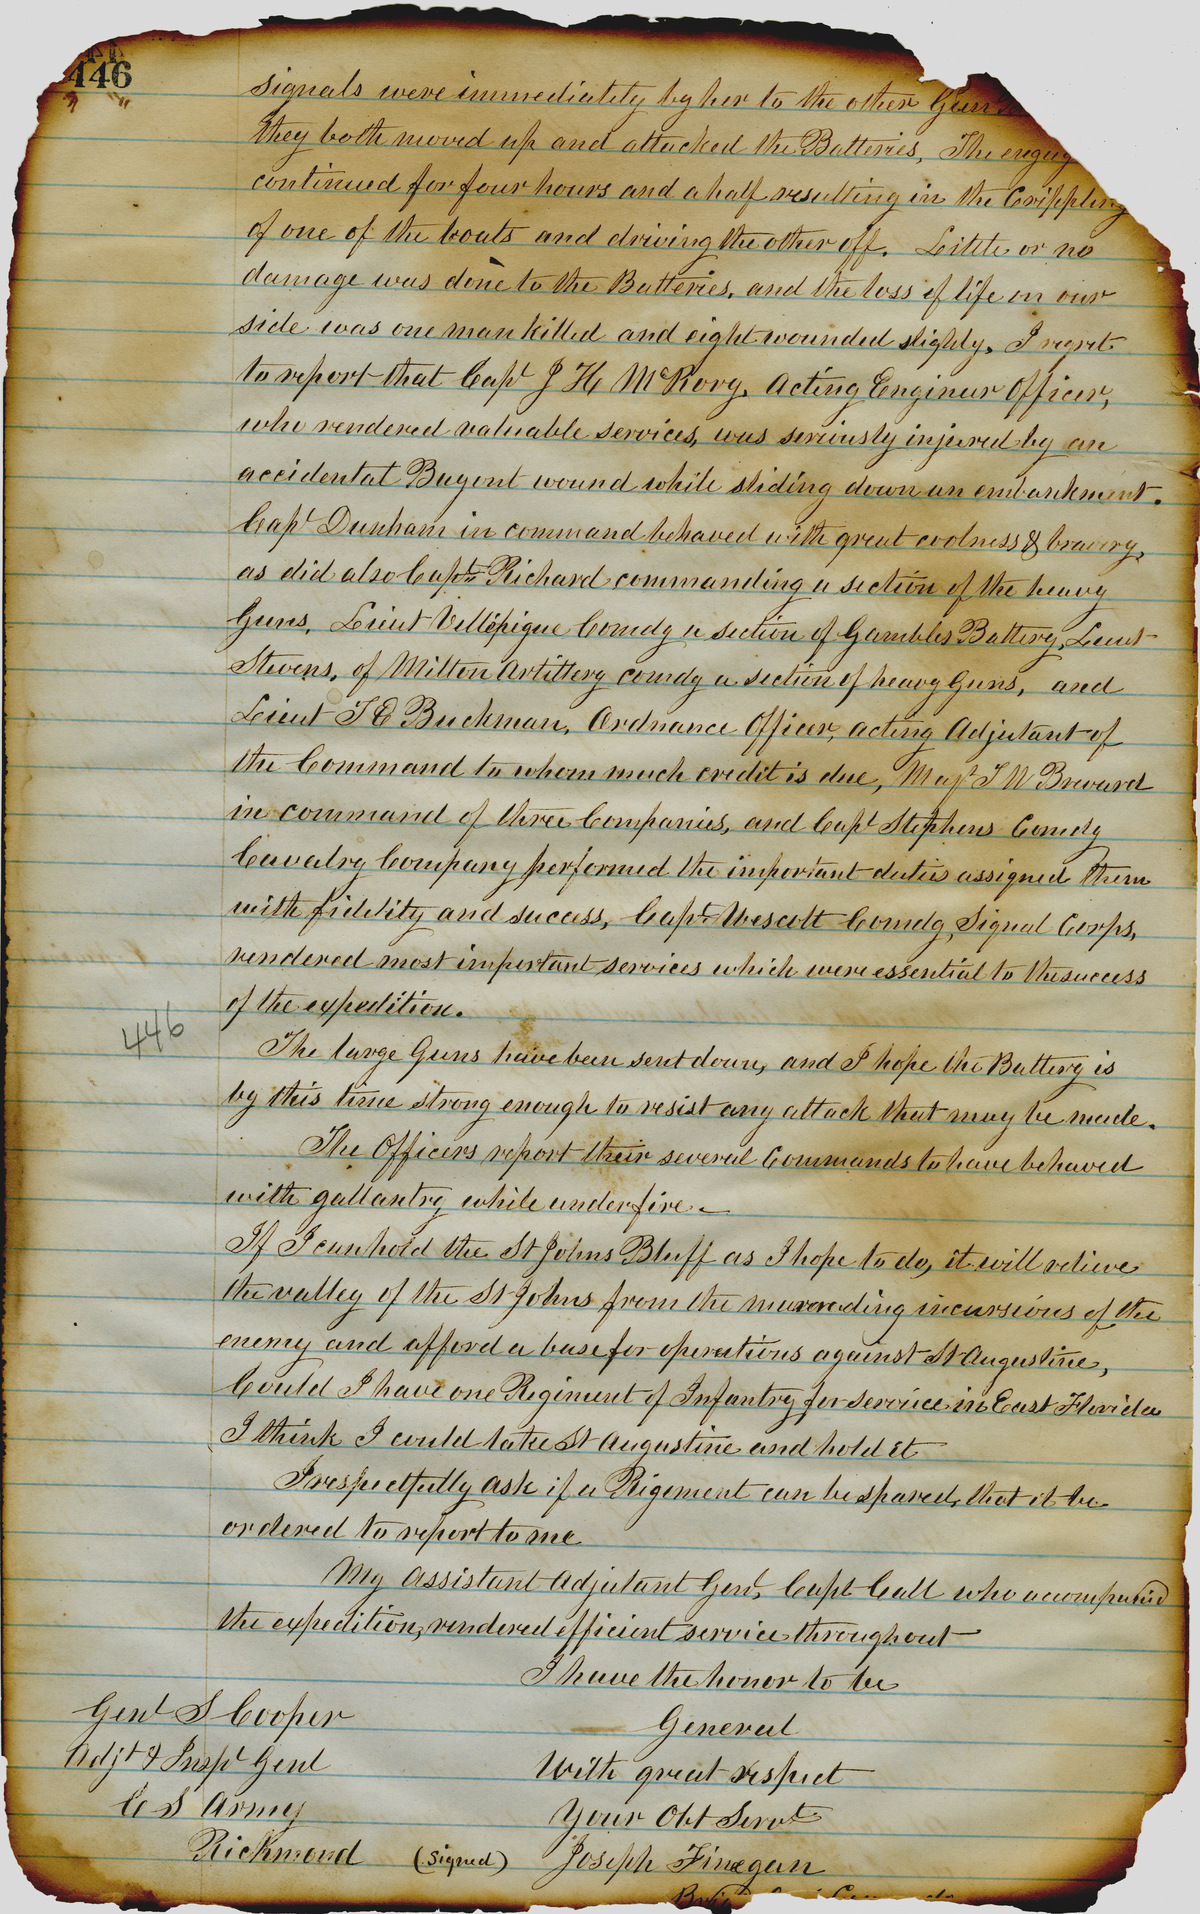 446
signals were immediately by her to the other Gun
they both moved up and attacked the Batteries, The engag
continued for four hours and a half resulting in the Crippling
of one of the boats and driving the other off. Little or no
damage was done to the Batteries, and the loss of life on our
side was one man killed and eight wounded slighly. I regret
to report that Capt J H McRory, Acting Engineer Officer,
who rendered valuable services, was seriously injured by an
accidental Bayont wound while sliding down an embankment.
Capt Dunham in command behaved with great coolness & bravery,
as did also Capt Richard commanding a section of the heavy
Guns, Lieut Vellepigue Comdg a section of Gambles Battery, Lieut
Stevens, of Milton Artillery comdg a section of heavy Guns, and
Lieut T E Buckman, Ordnance Officer, acting Adjutant of
the Command to whom much credit is due, Majr T W Brevard
in command of three Companies, and Capt Stephens Comdg
Cavalry Company performed the important duties assigned them
with fidelity and success, Capt Wescott Comdg, Signal Corps,
rendered most important services which were essential to the success
of the expedition.
446
The large Guns have been sent down, and I hope the Battery is
by this time strong enough to resist any attack that may be made.
The Officers report their several Commands to have behaved
with gallantry while under fire.
If I can hold the St Johns Bluff as I hope to do, it will relieve
the valley of the St Johns from the murauding incursions of the
enemy and afford a base for operations against St Augustine,
Could I have one Regiment of Infantry for service in East Florida
I think I could take St Augustine and hold it
I respectfully ask if a Rigement can be spared, that it be
ordered to report to me
My Assistant Adjutant Genl, Capt Call who acompanied
the expedition, rendered efficient service throughout
I have the honor to be
Genl S Cooper
General
Adjt & Inspt Genl
With great respect
C S Army
Your Obt Servt
Richmond (signed) Joseph Finegan
Brig